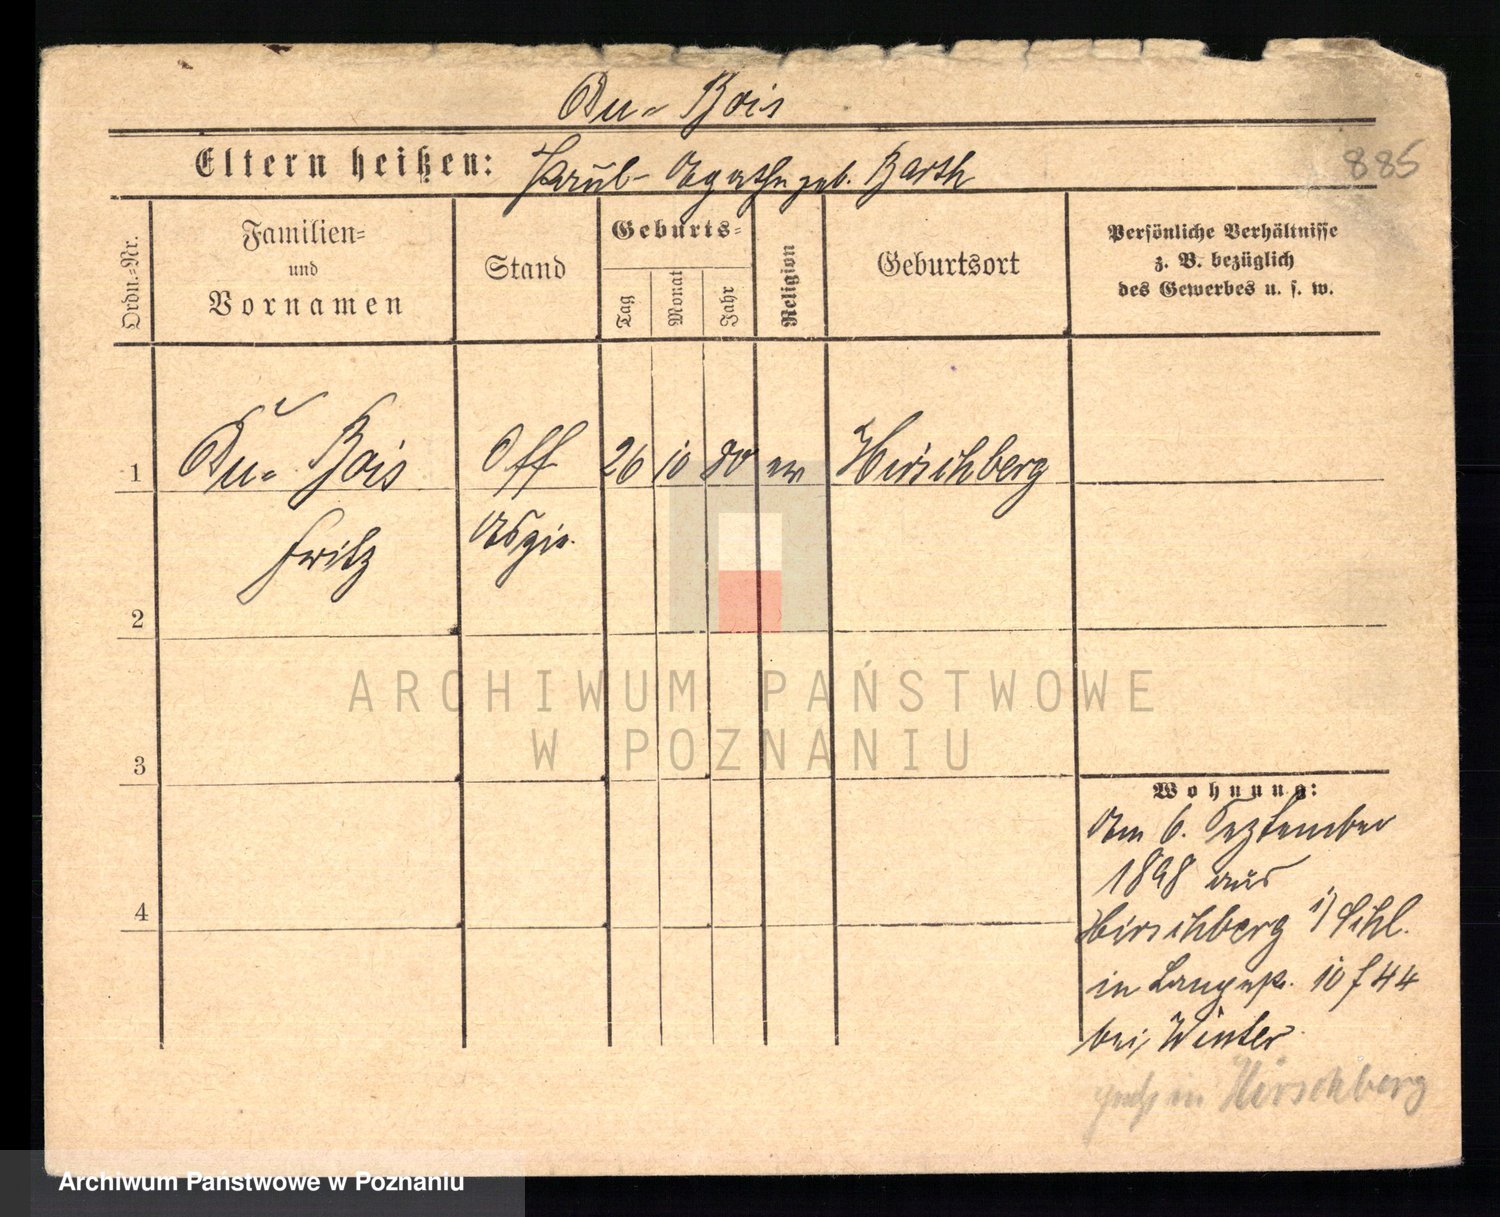 Du- Bois
Eltern heißen: Paul- Agathe geb. Barth
885
Ordn.-Nr.
Familien-
und
Vornamen
Stand
Geburts-
Tag
Monat
Jahr
Religion
Geburtsort
Persönliche Verhältnisse
z. B. bezüglich
des Gewerbes u. s. w.
1 Du- Bois Off 26 10 80 ev Hirschberg
Fritz Aspir.
2
3
4
Wohnung:
Am 6. September
1898 aus
Hirschberg i/Schl.
in Langestr. 10 f 44
bei Winter
in Hirschberg
ARCHIWUM PAŃSTWOWE
W POZNANIU
Archiwum Państwowe w Poznaniu